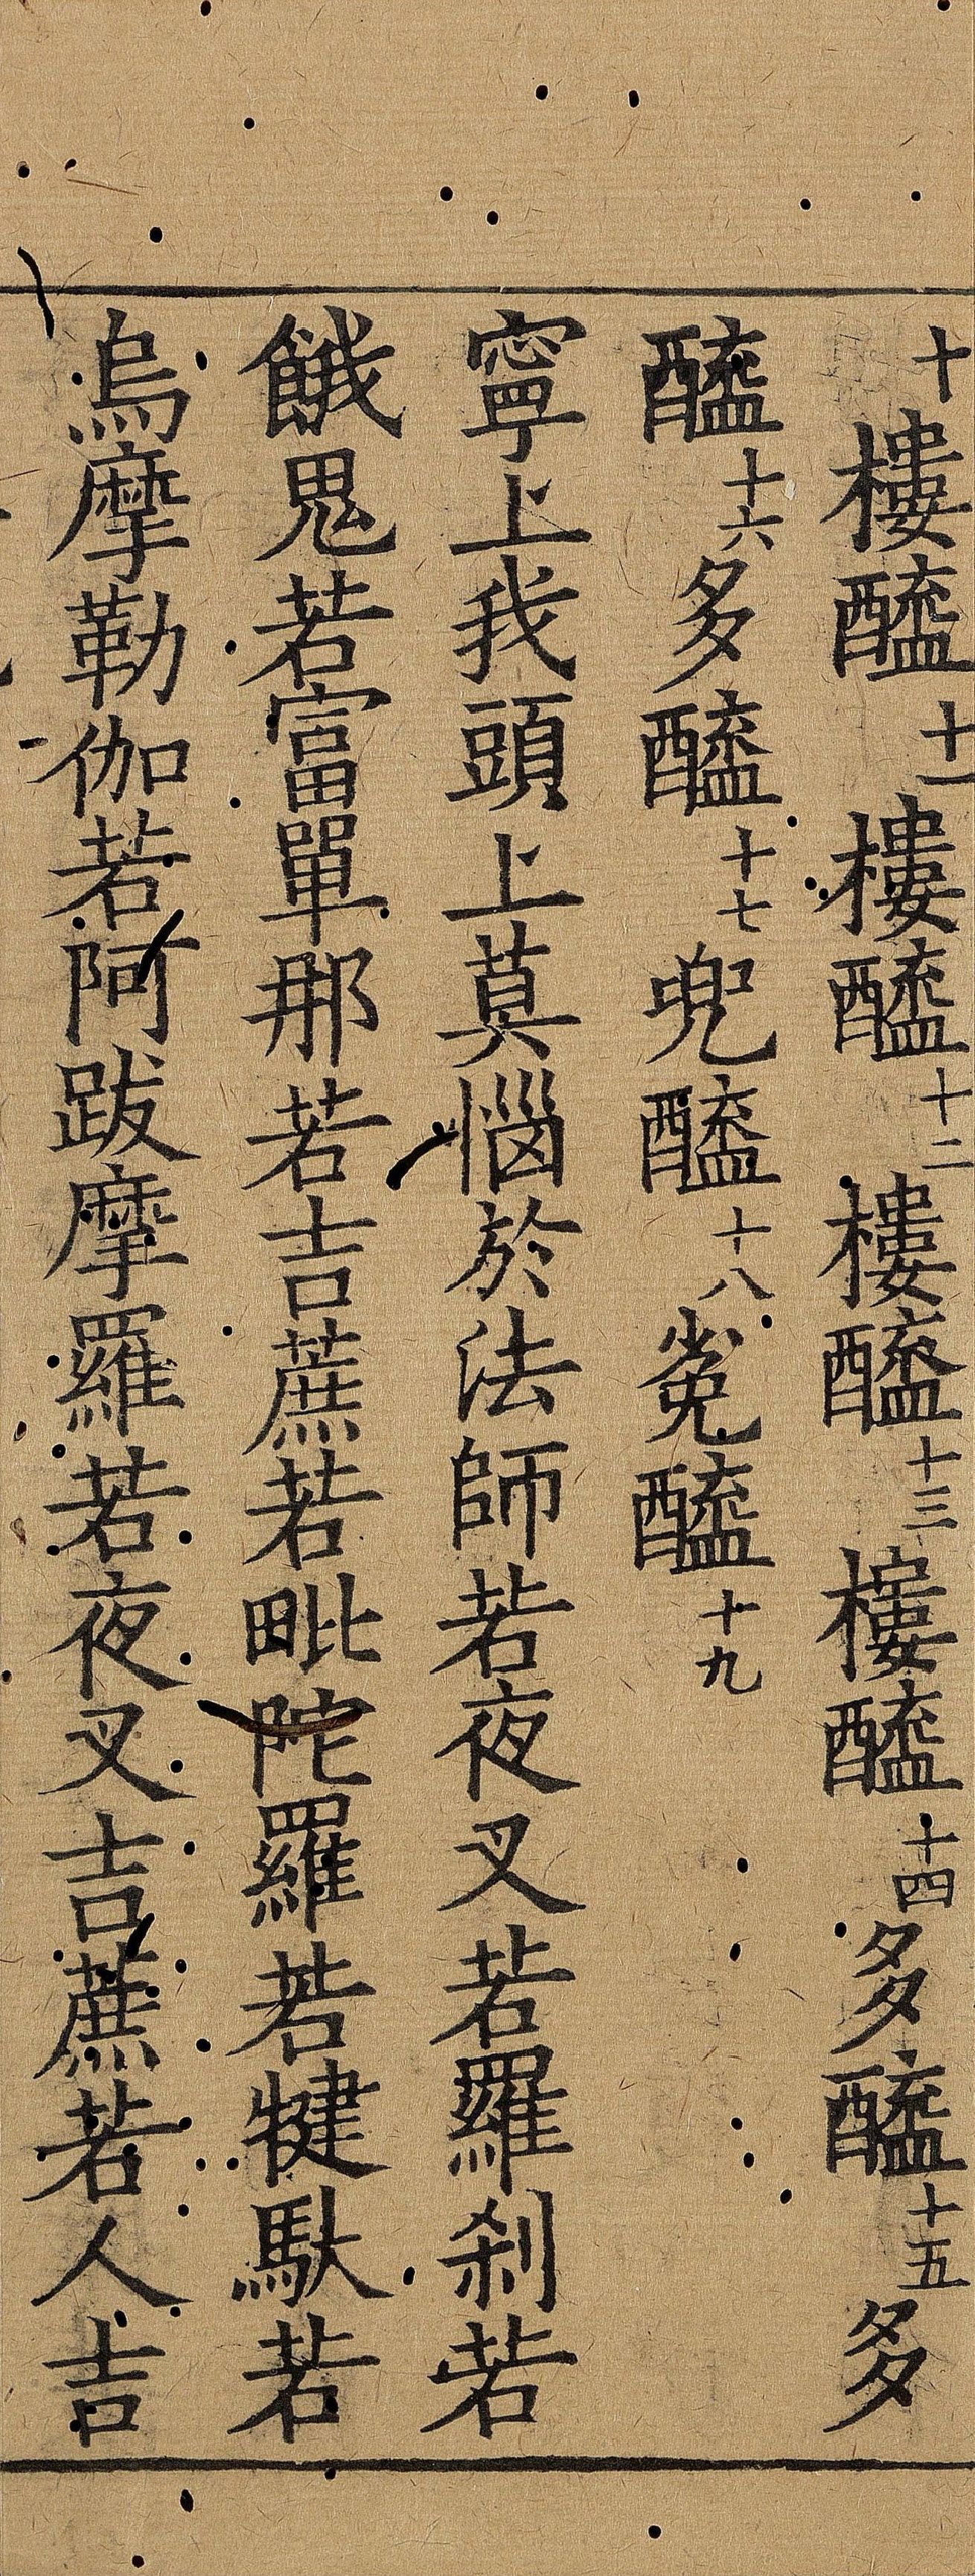 十樓醯十一樓醯十二樓醯十三樓醯十四多醯十五多
醯十六多醯十七兜醯十八㝹醯十九
寧上我頭上莫惱於法師若夜叉若羅剎若
餓鬼若富單那若吉蔗若毗陀羅若犍馱若
烏摩勒伽若阿跋摩羅若夜叉吉蔗若人吉